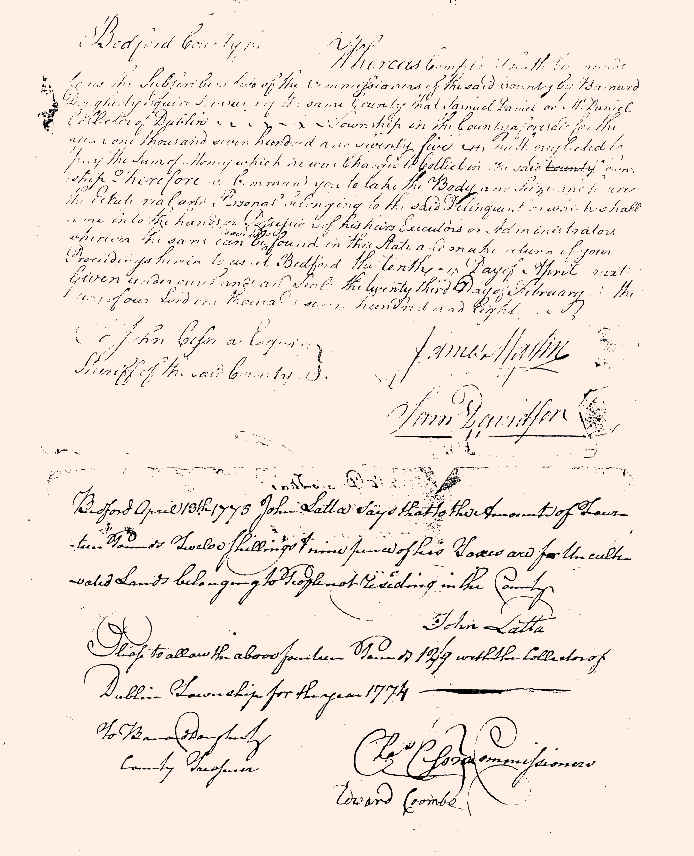 Bedford County ss
Whereas Complaint is made
to us the Subscribers two of the Commissioners of the said County by Barnard
Dougherty Esquire Treasurer of the same County that Samuel Daniel or McDaniel
Collector of Dublin Township in the County aforesaid for the
year one thousand seven hundred and seventy five hath neglected to
pay the Sum of Money which he was Charged to Collect in the said County Town-
ship Therefore we Command you to take the Body and Seize
the Estate real and Personal belonging to the said Delinquent or shall
come into the hands or Possession of his heirs Executors or Administrators
wherever the same can be found in this State and make return of your
Proceedings herein to us at Bedford the tenth Day of April next
Given under our hands and Seals the twenty third Day of February the
Year of our Lord one thousand seven hundred and Eight
To John Cessna Esquire
Sheriff of the said County
James Martin
Saml Davidson
Bedford April 13th 1775 John Latta Says that to the Amount of Four-
-teen Pounds Twelve Shillings & nine pence of his Taxes are for Uncult-
-vated Lands belonging to People not Residing in the County
John Latta
Please to allow the above fourteen Pounds 12/9 with the Collector of
Dublin Township for the year 1774
To Barnd Dougherty
County Treasurer
Chas Cessna Commissioners
Edward Coombe